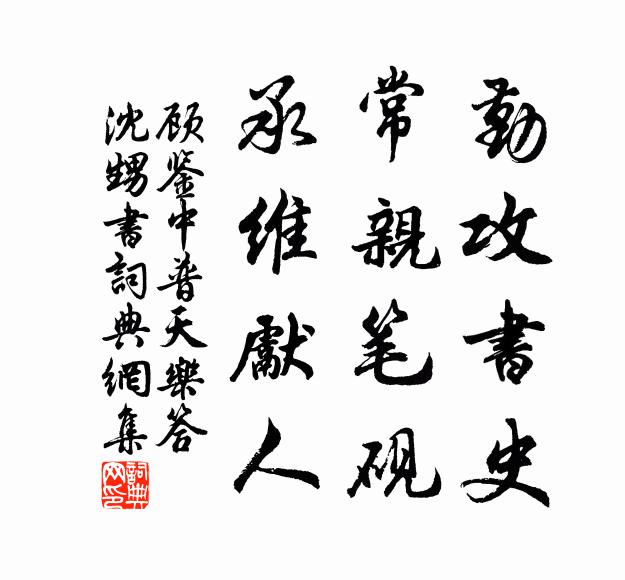 勤攻書史
常親笔硯
承維獻人
顾鉴中普天樂答
沈甥書詞典網集
詞典网印